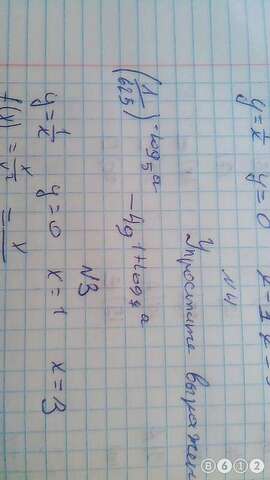 y = 1/x y = 0 x = 1
N4
Упростите выражен
(1/625)^(-log₅a) - 49^(1+log₇a)
N3
y = 1/x y = 0 x = 1 x = 3
f(x) = x/x² = x
8612